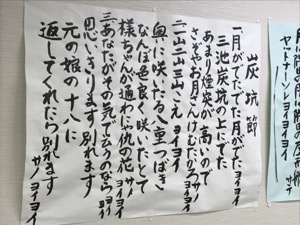 炭坑節
一月がでたでた月がでた ヨイヨイ
三池炭坑の上にでた
あまり煙突が高いので
さぞやお月さんけむたかろ サノヨイヨイ
二一山二山三山こえ ヨイヨイ
奥に咲いたる八重つばき
なんぼ色良く咲いたとて
様ちゃんが通わにゃ仇の花 サノヨイヨイ
三あなたがその気で云うのなら ヨイヨイ
思いきります別れます
元の娘の十八に
返してくれたら別れます
サノヨイヨイ
ヤットナーソレヨイヨイヨイ